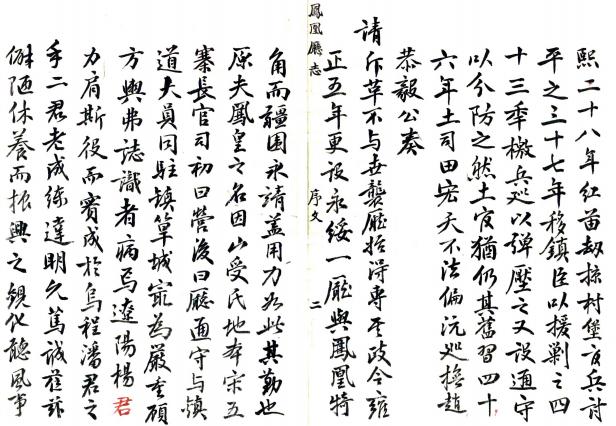 熙二十八年紅苗劫掠村堡發兵討
平之三十七年移鎮臣以援剿之四
十三年檄兵巡以彈壓之又設通守
以分防之然土官猶仍其舊習四十
六年土司田宏天不法偏沅巡撫趙
恭毅公奏
請斥革不与世襲廳始得專其政今雍
正五年更設永綏一廳與鳳凰犄
鳳凰廳志
序文
二
角而疆圉永靖蓋用力如此其勤也
原夫鳳皇之名因山受氏地本宋五
寨長官司初曰營後曰廳通守与鎮
道大員同駐鎮筸城寔為嚴重顧
方輿弗誌識者病焉遼陽楊君
力肩斯役而賓成於烏程潘君之
手二君老成練達明允篤誠蒞茲
僻陋休養而振興之觀化聽風事